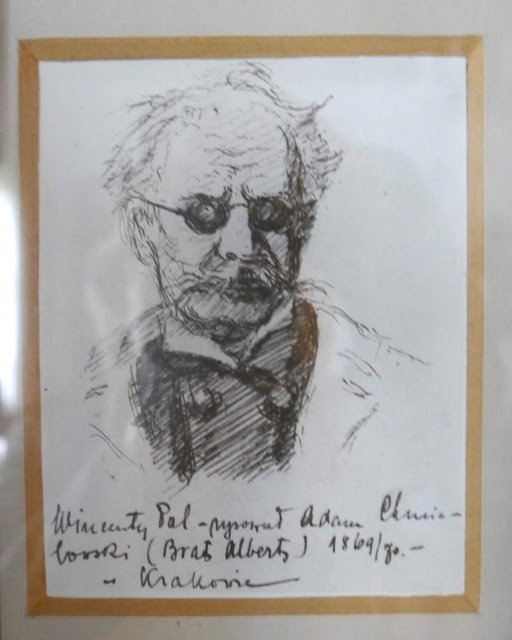 Wincenty Pol – rysował Adam Chmie-
lowski (Brat Albert) 1869/70. –
– Krakowie